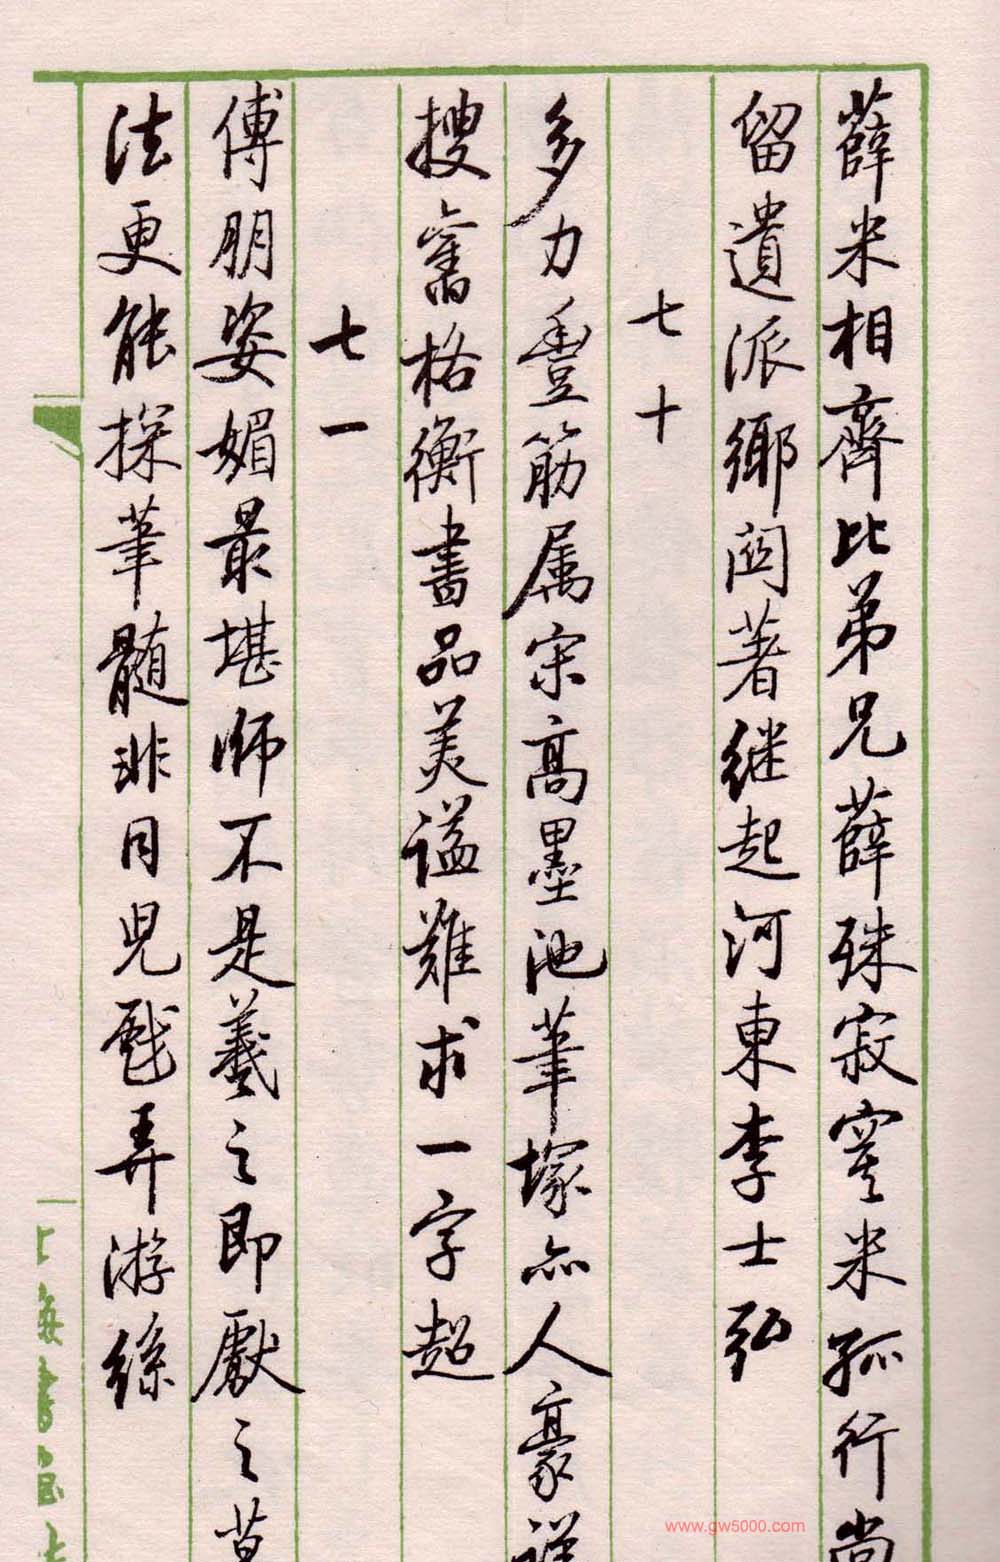 薛米相齊比弟兄薛殊寂寞米孤行尚
留遺派鄉閭著继起河東李士弘
七十
多力豐筋属宋高墨池筆塚亦人豪
搜舊格衡書品美谥難求一字超
七一
傅朋姿媚最堪師不是羲之即獻之
法更能探筆髓非同兒戲弄游絲
上海書画
www.gw5000.com